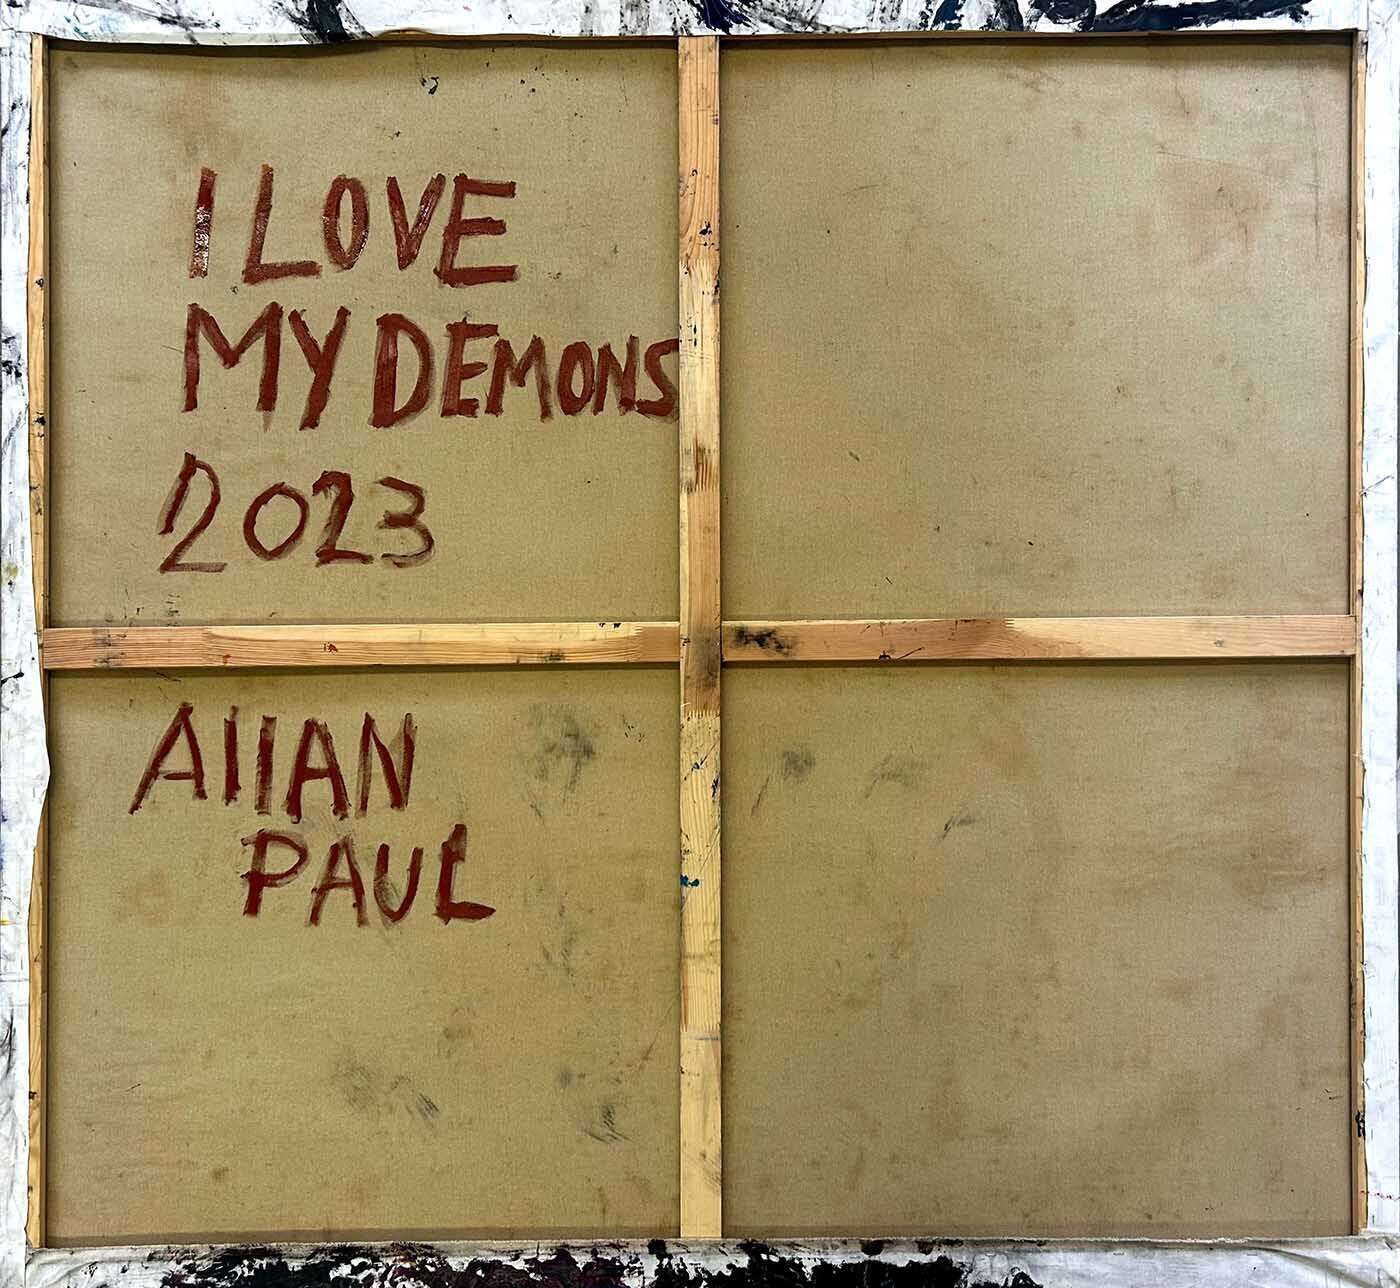 I LOVE
MY DEMONS
2023
AllAN
PAUL